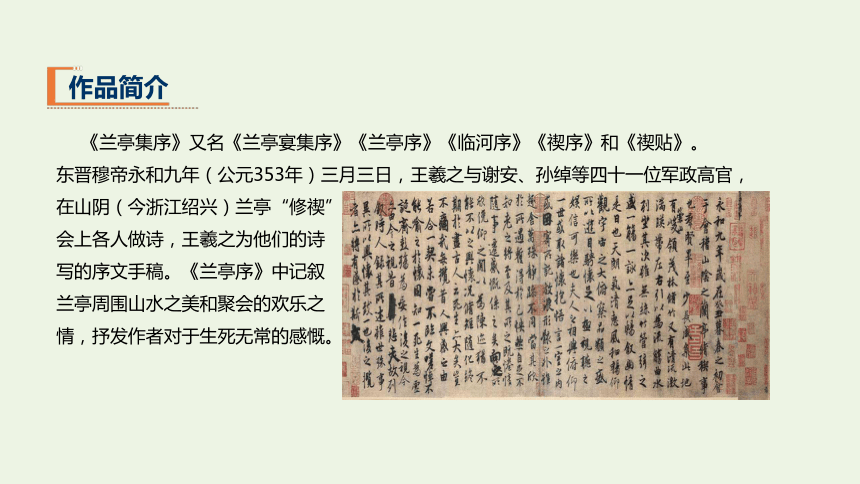 作品简介
《兰亭集序》又名《兰亭宴集序》《兰亭序》《临河序》《禊序》和《禊贴》。
东晋穆帝永和九年(公元353年)三月三日,王羲之与谢安、孙绰等四十一位军政高官,
在山阴(今浙江绍兴)兰亭“修禊”
会上各人做诗,王羲之为他们的诗
写的序文手稿。《兰亭序》中记叙
兰亭周围山水之美和聚会的欢乐之
情,抒发作者对于生死无常的感慨。
永和九年歲在癸丑暮春之初會
于會稽山陰之蘭亭脩稧事
也羣賢畢至少長咸集此地
有崇山峻領茂林脩竹又有清流激
湍暎帶左右引以為流觴曲水
列坐其次雖無絲竹管弦之
盛一觴一詠亦足以暢叙幽情
是日也天朗氣清惠風和暢仰
觀宇宙之大俯察品類之盛
所以遊目騁懷足以極視聽之
娛信可樂也夫人之相與俯仰
一世或取諸懷抱悟言一室之內
或因寄所託放浪形骸之外雖
趣舍萬殊靜躁不同當其欣
於所遇蹔得於己怏然自足不
知老之將至及其所之既惓情
隨事遷感慨係之矣向之所
欣俛仰之閒以為陳迹猶不
能不以之興懷況脩短隨化終
期於盡古人云死生亦大矣豈
不痛哉每攬昔人興感之由
若合一契未嘗不臨文嗟悼不
能喻之於懷固知一死生為虛
誕齊彭殤為妄作後之視今
亦由今之視昔悲夫故列
叙時人錄其所述雖世殊事
異所以興懷其致一也後之攬
者亦將有感於斯文